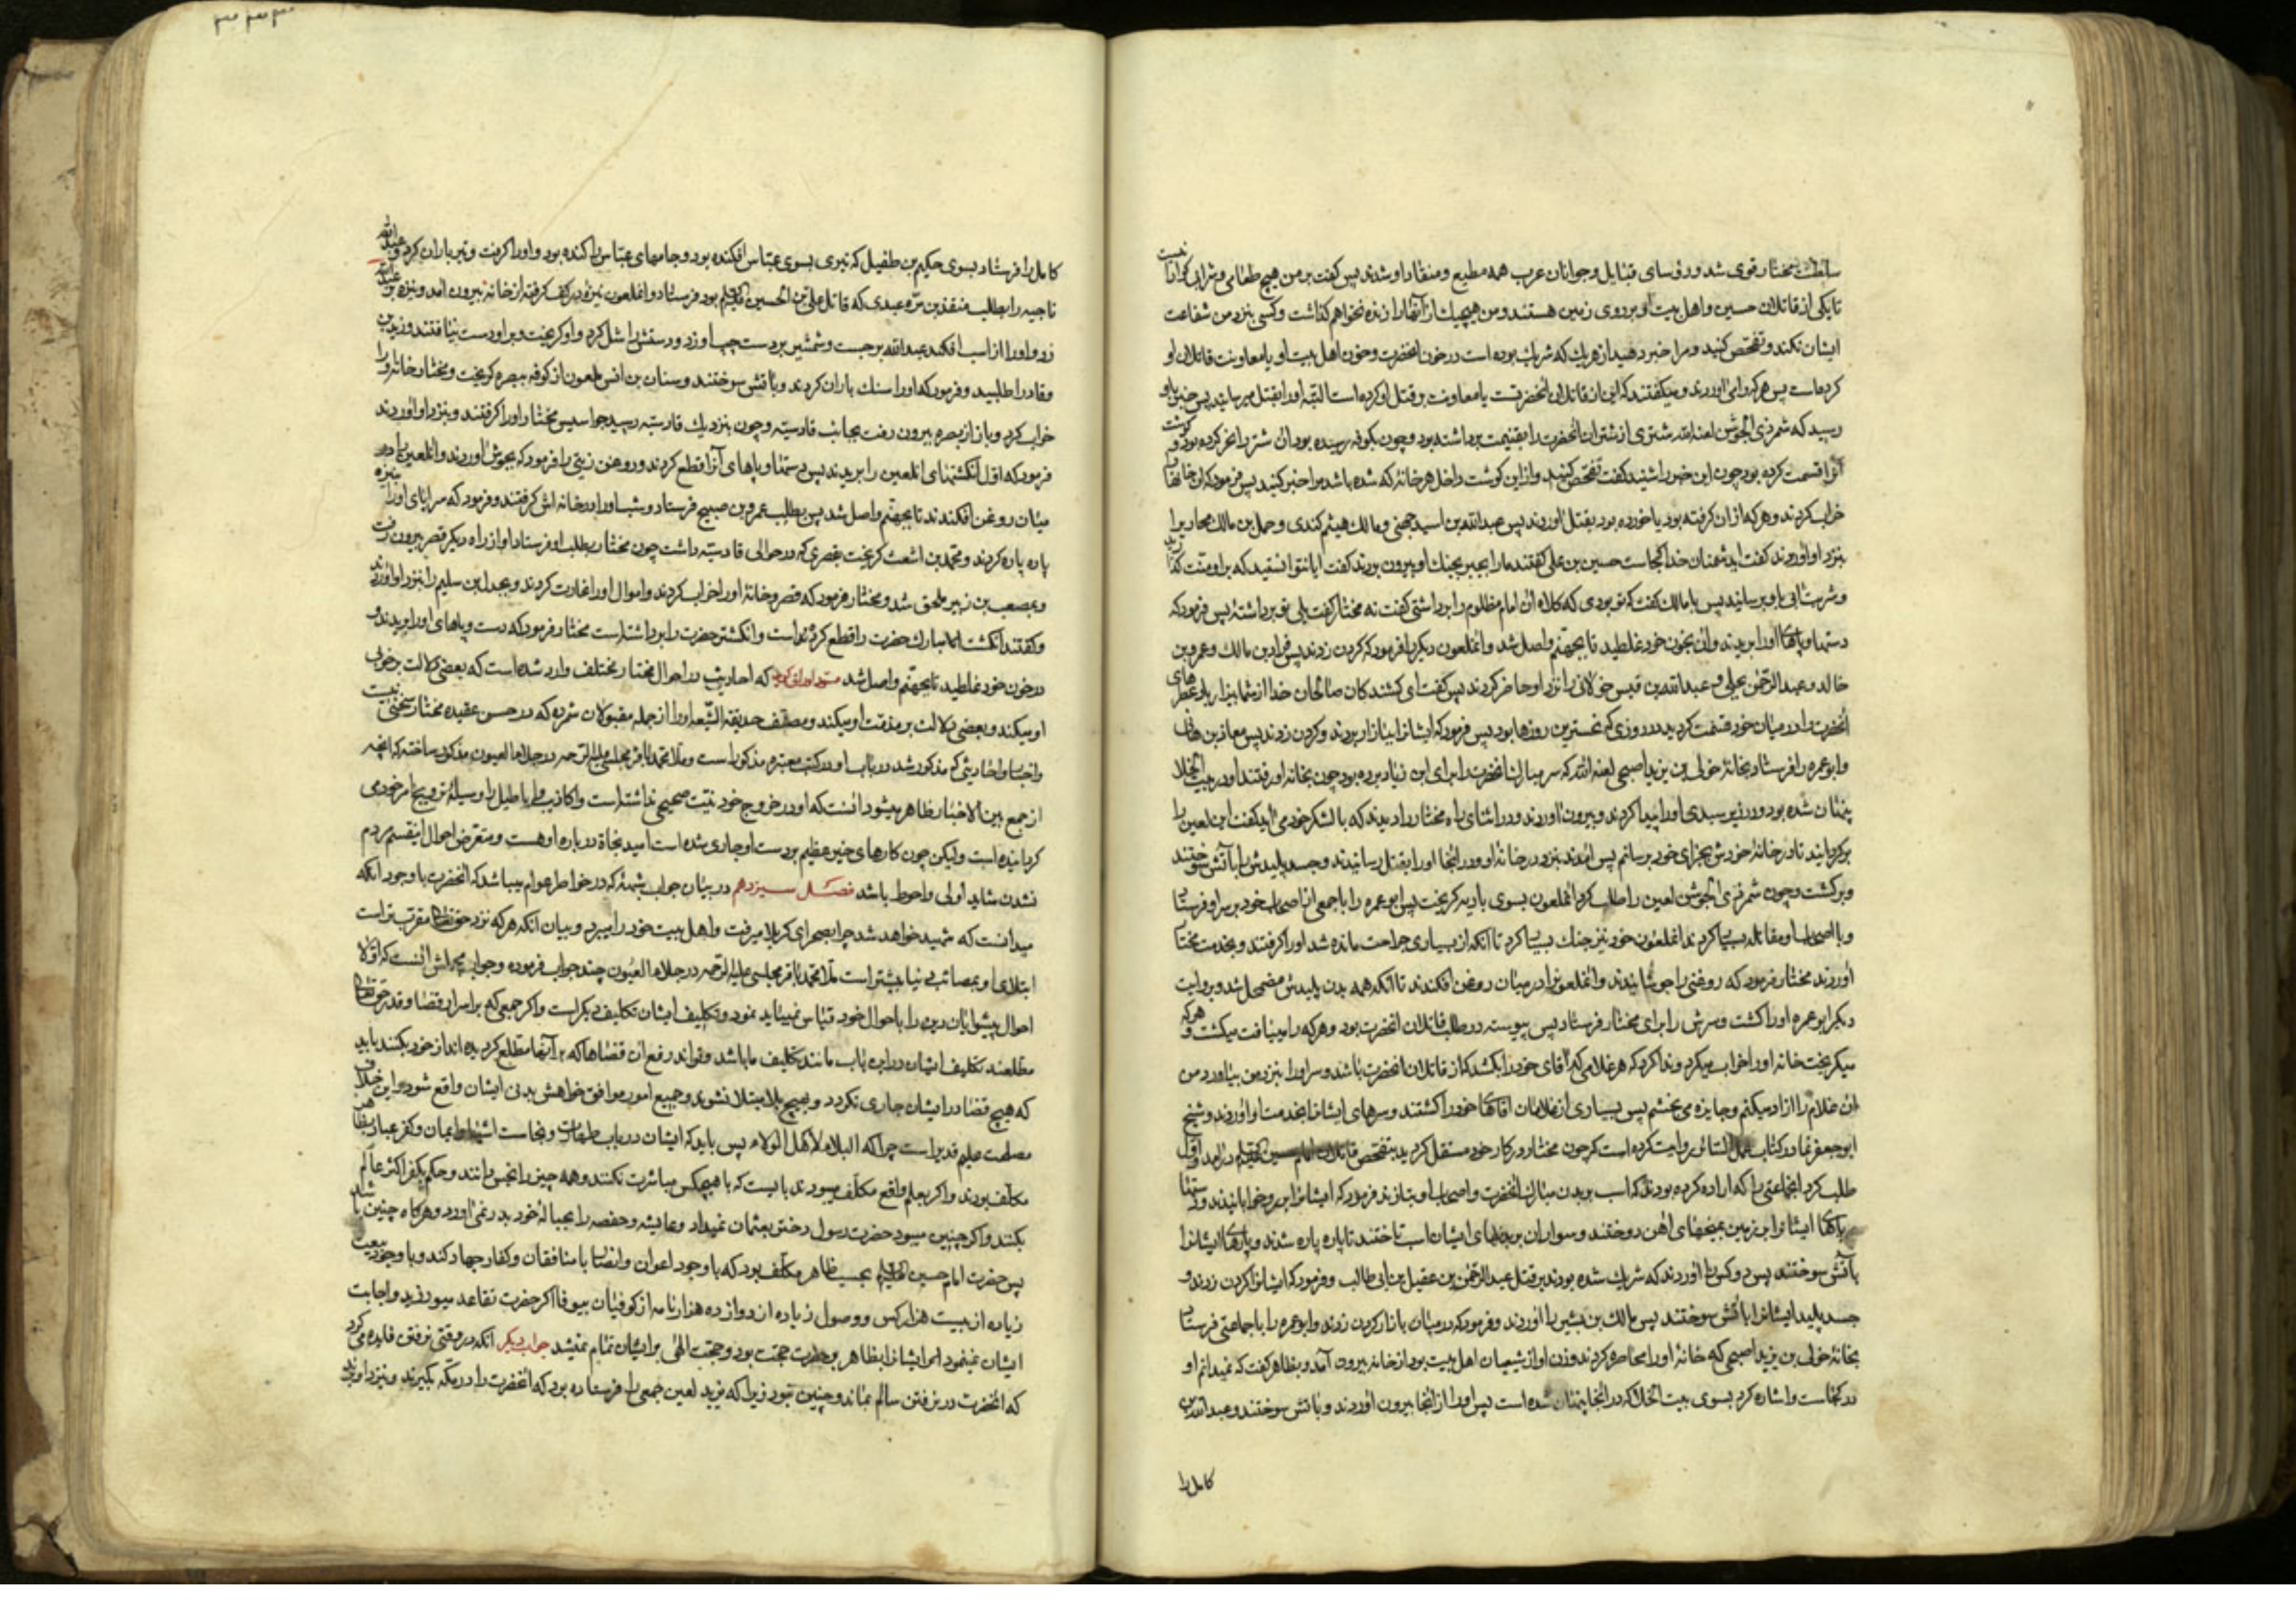 سلطنت مختار قوی شد و رؤسای قبایل و جوانان عرب همه مطیع و منقاد او شدند پس کفت بر من هیچ طعامی و شرابی کوارا نیست
تا یکی از قاتلان حسین و اهل بیت او بر روی زمین هستند و من هیچیک از آنها را زنده نخواهم کذاشت و کسی بنزد من شفاعت
ایشان نکند و تفحص کنید و مرا خبر دهید از هر یک که شریک بوده است در خون انحضرت و خون اهل بیت او یا معاونت قاتلان او
کرده است پس هر که را می اوردند و میکفتند که این از قاتلان انحضرتست یا معاونت بر قتل او کرده است البته او را بقتل میرسانید پس خبر باو
رسید که شمر ذی الجوشن لعنه الله شتری از شتران انحضرت را بغنیمت برداشته بود و چون بکوفه رسیده بود ان شتر را نحر کرده بود و کوشت
آنرا قسمت کرده بود چون این خبر را شنید کفت تفحص کنید و از این کوشت داخل هر خانه که شده باشد مرا خبر کنید پس فرمود که ان خانها را
خراب کردند و هر که از ان کرفته بود یا خورده بود بقتل اوردند پس عبدالله بن اسید جهنی و مالک هیثم کندی و حمل بن مالک محاربی را
بنزد او اوردند کفت ایدشمنان خدا کجاست حسین بن علی کفتند ما را بجبر بجنک او بیرون بردند کفت ایا نتوانستید که بر او منت کذارید
و شربت ابی باو برسانید پس با مالک کفت که تو بودی که کلاه ان امام مظلوم را برداشتی کفت نه مختار کفت بلی تو برداشتهٔ پس فرمود که
دستها و پاهای او را بریدند و ان بخون خود غلطید تا بجهنم واصل شد و انملعون دیکر را فرمود که کردن زدند پس قراد بن مالک و عمرو بن
خالد و عبدالرحمن بجلی و عبدالله بن قیس خولانی را نزد او حاضر کردند پس کفت ای کشندکان صالحان خدا از شما بیزار باد عطرهای
انحضرت را در میان خود قسمت کردید در روزی که نحسترین روزها بود پس فرمود که ایشانرا ببازار بردند و کردن زدند پس معاذ بن هانی
و ابو عمره را فرستاد بخانهٔ خولی بن یزید اصبحی لعنه الله که سر مبارک انحضرت را برای ابن زیاد برده بود چون بخانه او رفتند او در بیت الخلا
پنهان شده بود و در زیر سبدی او را پیدا کردند و بیرون اوردند و در اثنای راه مختار را دیدند که با لشکر خود می اید کفت این لعین را
برکردانید تا در خانهٔ خودش بجزای خود برسانم پس امدند بنزد در خانهٔ او و در انجا او را بقتل رسانیدند و جسد پلیدش را باتش سوختند
و برکشت و چون شمر ذی الجوشن لعین را طلب کرد انملعون بسوی بادیه کریخت پس ابو عمره را با جمعی از اصحاب خود بر سر او فرستاد
و با اصحاب او مقاتله بسیار کردند انملعون خود نیز جنک بسیار کرد تا انکه از بسیاری جراحت مانده شد او را کرفتند و بخدمت مختار
اوردند مختار فرمود که روغنی را جوشانیدند و انملعونرا در میان روغن افکندند تا انکه همه بدن پلیدش مضمحل شد و بروایت
دیکر ابو عمره او را کشت و سرش را برای مختار فرستاد پس پیوسته در طلب قاتلان انحضرت بود و هر که را میافت میکشت و هر که
میکریخت خانه او را خراب میکرد و ندا کرد که هر غلامی که آقای خود را بکشد که از قاتلان انحضرت باشد و سر او را بنزد من بیاورد من
ان غلام را ازاد میکنم و جایزه می بخشم پس بسیاری از غلامان اقاهای خود را کشتند و سرهای ایشانرا بخدمت او اوردند و شیخ
ابو جعفر نما در کتاب عمل الثار روایت کرده است که چون مختار در کار خود مستقل کردید بتفحص قاتلان امام حسین علیه السلام درآمد و اول
طلب کرد انجماعتی را که اراده کرده بودند که اسب بر بدن مبارک انحضرت و اصحاب او بتازند فرمود که ایشانرا بر رو خوابانیدند و دستها
پاهای ایشانرا بر زمین بمیخهای اهن دوختند و سواران بر بدنهای ایشان اسب تاختند تا پاره پاره شدند و پارهای ایشانرا
باتش سوختند پس دو کس را اوردند که شریک شده بودند در قتل عبدالرحمن بن عقیل بن ابی طالب و فرمود که ایشانرا کردن زدند و
جسد پلید ایشانرا باتش سوختند پس مالک بن بشیر را اوردند و فرمود که در میان بازار کردن زدند و ابو عمره را با جماعتی فرستاد
بخانهٔ خولی بن یزید اصبحی که خانهٔ او را محاصره کردند و زن او از شیعیان اهل بیت بود از خانه بیرون آمد و بظاهر کفت که نمیدانم او
در کجاست و اشاره کرد بسوی بیت الخلا که در انجا پنهان شده است پس او را از انجا بیرون اوردند و باتش سوختند و عبدالله بن
کامل را
کامل را فرستاد بسوی حکیم بن طفیل که تیری بسوی عباس افکنده بود و جامهای عباس را کنده بود و او را کرفت و تیر باران کرد و عبدالله
ناجیه را بطلب منقذ بن مره عبدی که قاتل علی بن الحسین علیه السلام بود فرستاد و انملعون نیزه در کف کرفته از خانه بیرون امد و نیزه بر عبدالله
زد و او را از اسب افکند عبدالله برجست و شمشیر بر دست چپ او زد و دستش را شل کرد و او کریخت و بر او دست نیافتند و زید بن
وقاد را طلبید و فرمود که او را سنک باران کردند و باتش سوختند و سنان بن انس ملعون از کوفه ببصره کریخت و مختار خانه او را
خراب کرد و باز از بصره بیرون رفت بجانب قادسیه و چون بنزدیک قادسیه رسید جواسیس مختار او را کرفتند و بنزد او اوردند
فرمود که اول انکشتهای انلعین را بریدند پس دستها و پاهای آنرا قطع کردند و روغن زیتی را فرمود که بجوش اوردند و انلعین را در
میان روغن افکندند تا بجهنم واصل شد پس بطلب عمرو بن صبیح فرستاد و شب او را در خانه اش کرفتند و فرمود که سراپای او را بنیزه
پاره پاره کردند و محمد بن اشعث کریخت بقصری که در حوالی قادسیه داشت چون مختار بطلب او فرستاد او از راه دیکر قصر بیرون رفت
و بمصعب بن زبیر ملحق شد و مختار فرمود که قصر و خانهٔ او را خراب کردند و اموال او را غارت کردند و بجدل بن سلیم را بنزد او اوردند
و کفتند انکشت مبارک حضرت را قطع کرده است و انکشتر حضرت را برداشته است مختار فرمود که دست و پاهای او را بریدند و
در خون خود غلطید تا بجهنم واصل شد که احادیث در احوال مختار مختلف وارد شده است که بعضی دلالت بر خوبی
او میکند و بعضی دلالت بر مذمت او میکند و مصنف حدیقة الشیعه او را از جمله مقبولان شمرده که در حسن عقیده مختار سخنی نیست
و اخبار و احادیثی که مذکور شد در باب او در کتب معتبره مذکور است و ملا محمد باقر مجلسی علیه الرحمه در جلاء العیون مذکور ساخته که انچه
از جمع بین الاخبار ظاهر میشود انست که او در خروج خود نیت صحیحی نداشته است و اکاذیب و اباطیل را وسیلهٔ ترویج امر خود می
کردانیده است و لیکن چون کارهای خیر عظیم بر دست او جاری شده است امید نجاة در باره او هست و متعرض احوال اینقسم مردم
نشدن شاید اولی و احوط باشد فصل سیزدهم در بیان جواب شبههٔ که در خواطر عوام میباشد که انحضرت با وجود انکه
میدانست که شهید خواهد شد چرا بصحرای کربلا میرفت و اهل بیت خود را میبرد و بیان انکه هر که نزد حق تعالی مقرب تر است
ابتلای او بمصائب دنیا بیشتر است ملا محمد باقر مجلسی علیه الرحمه در جلاء العیون چند جواب فرموده و جواب مجملش انست که اولا
احوال پیشوایان دین را باحوال خود قیاس نمیباید نمود و تکلیف ایشان تکالیف دیکر است و اکر جمعی که بر اسرار قضا و قدر حق تعالی
مطلعند تکلیف ایشان در این باب مانند تکلیف ما باشد و تواند رفع ان قضاها که بر آنها مطلع کردیده اند از خود بکنند باید
که هیچ قضا در ایشان جاری نکردد و بهیچ بلا مبتلا نشوند و جمیع امور موافق خواهش بدنی ایشان واقع شود و این خلاف
مصلحت علیم قدیر است چرا که البلاء لاهل الولاء پس باید که ایشان در باب طهارت و نجاست اشیا و ایمان و کفر عباد بظاهر
مکلف بودند و اکر بعلم واقع مکلف میبودند بایست که با هیچکس مباشرت نکنند و همه چیز را نجس دانند و حکم بکفر اکثر عالم
بکنند و اکر چنین میبود حضرت رسول دختر بعثمان نمیداد و عایشه و حفصه را بحبالهٔ خود بدر نمی اورد و هر کاه چنین باشد
پس حضرت امام حسین علیه السلام بحسب ظاهر مکلف بود که با وجود اعوان و انصار با منافقان و کفار جهاد کند و با وجود بیعت
زیاده از بیست هزار کس و وصول زیاده از دوازده هزار نامه از کوفیان بیوفا اکر حضرت تقاعد میورزید و اجابت
ایشان نمینمود ایشانرا بظاهر بر حضرت حجت بود و حجت الهی بر ایشان تمام نمیشد جواب دیکر انکه در وقتی نرفتن فایده می کرد
که انحضرت در نرفتن سالم بماند و چنین نبود زیرا که یزید لعین جمعی را فرستاده بود که انحضرت را در مکه بکیرند و بنزد او برند